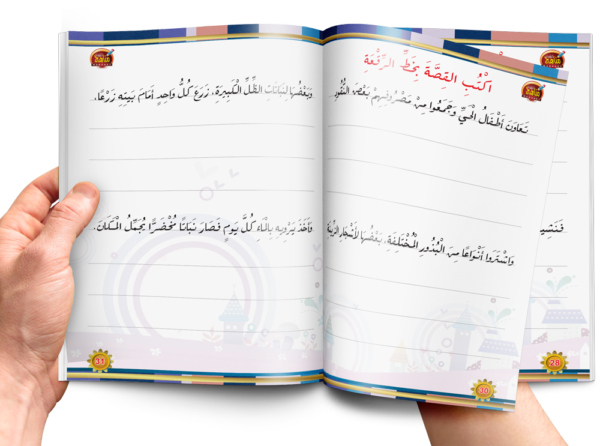 اكْتُبِ القِصَّةَ بِخَطِّ الرُّقْعَةِ
تَعَاوَنَ أَطْفَالُ الْحَيِّ وَجَمَعُوا مِنْ مَصْرُوفِهِمْ بَعْضَ النُّقُودِ
وَاشْتَرَوا أَنْوَاعًا مِنَ الْبُذُورِ الْمُخْتَلِفَةِ، بَعْضُهَا لِلْأَشْجَارِ
30
وَبَعْضُهَا لِنَبَاتَاتِ الظِّلِّ الْكَبِيرَةِ، زَرَعَ كُلُّ وَاحِدٍ أَمَامَ بَيْتِهِ زَرْعًا،
وَأَخَذَ يَرْوِيهِ بِالْمَاءِ كُلَّ يَوْمٍ فَصَارَ نَبَاتًا مُخْضَرًّا يُجَمِّلُ الْمَكَانَ.
31
28